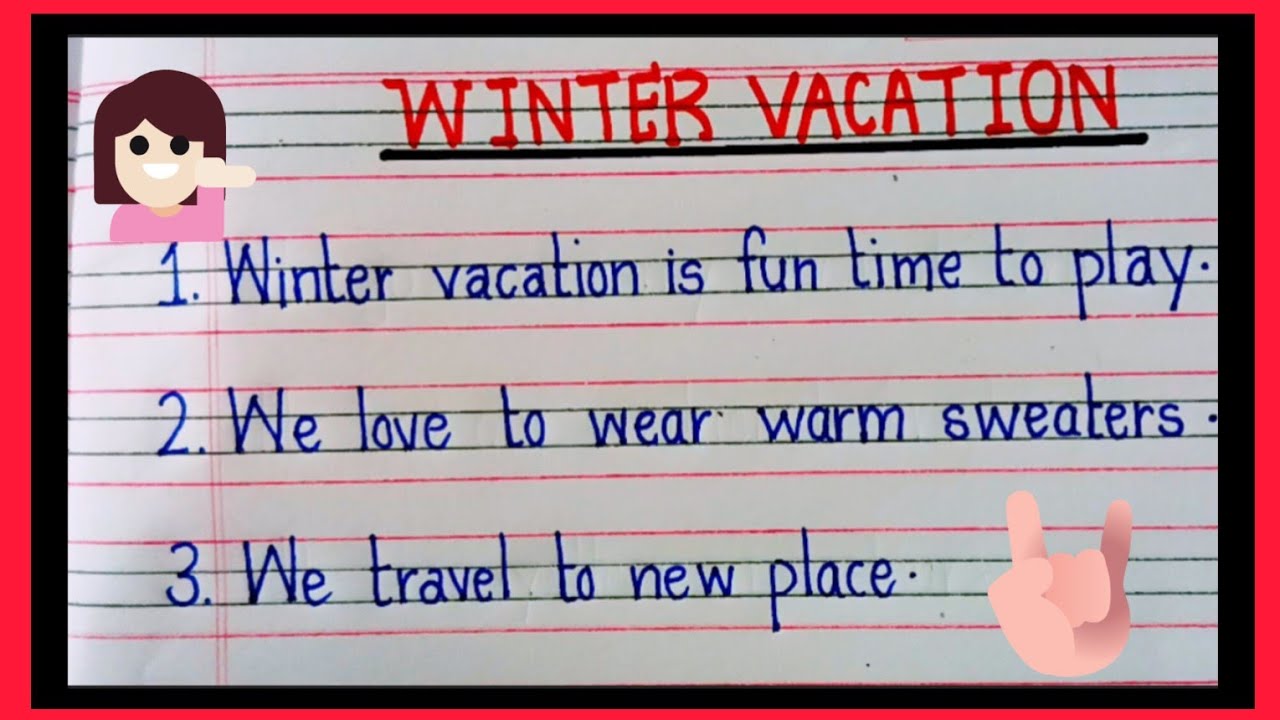 WINTER VACATION
1. Winter vacation is fun time to play.
2. We love to wear warm sweaters.
3. We travel to new place.